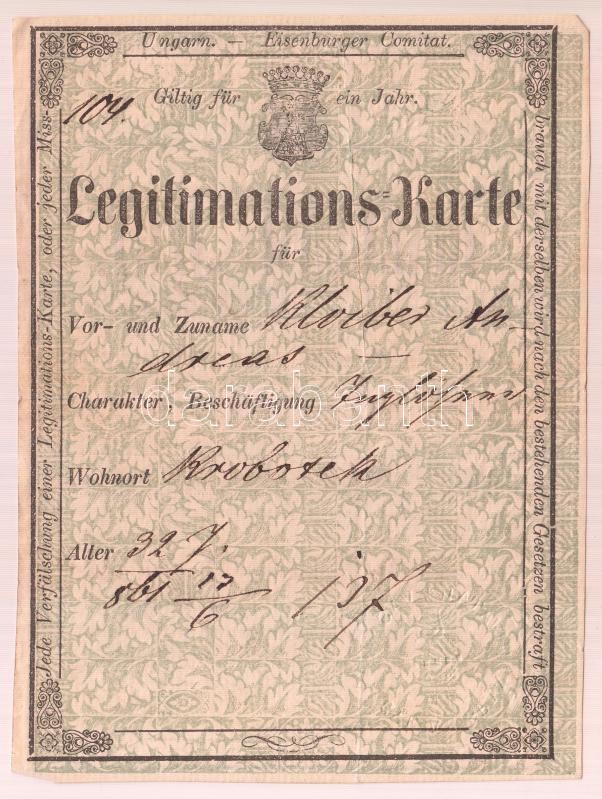 Ungarn. — Eisenburger Comitat.
104.
Giltig für ein Jahr.
Legitimations-Karte
für
Vor- und Zuname Kloiber An-
dreas —
Charakter, Beschäftigung Taglöhner
Wohnort Krobotek
Alter 32 J.
861 17/6 137
Jede Verfälschung einer Legitimations-Karte, oder jeder Miss-
brauch mit derselben wird nach den bestehenden Gesetzen bestraft
darabanth